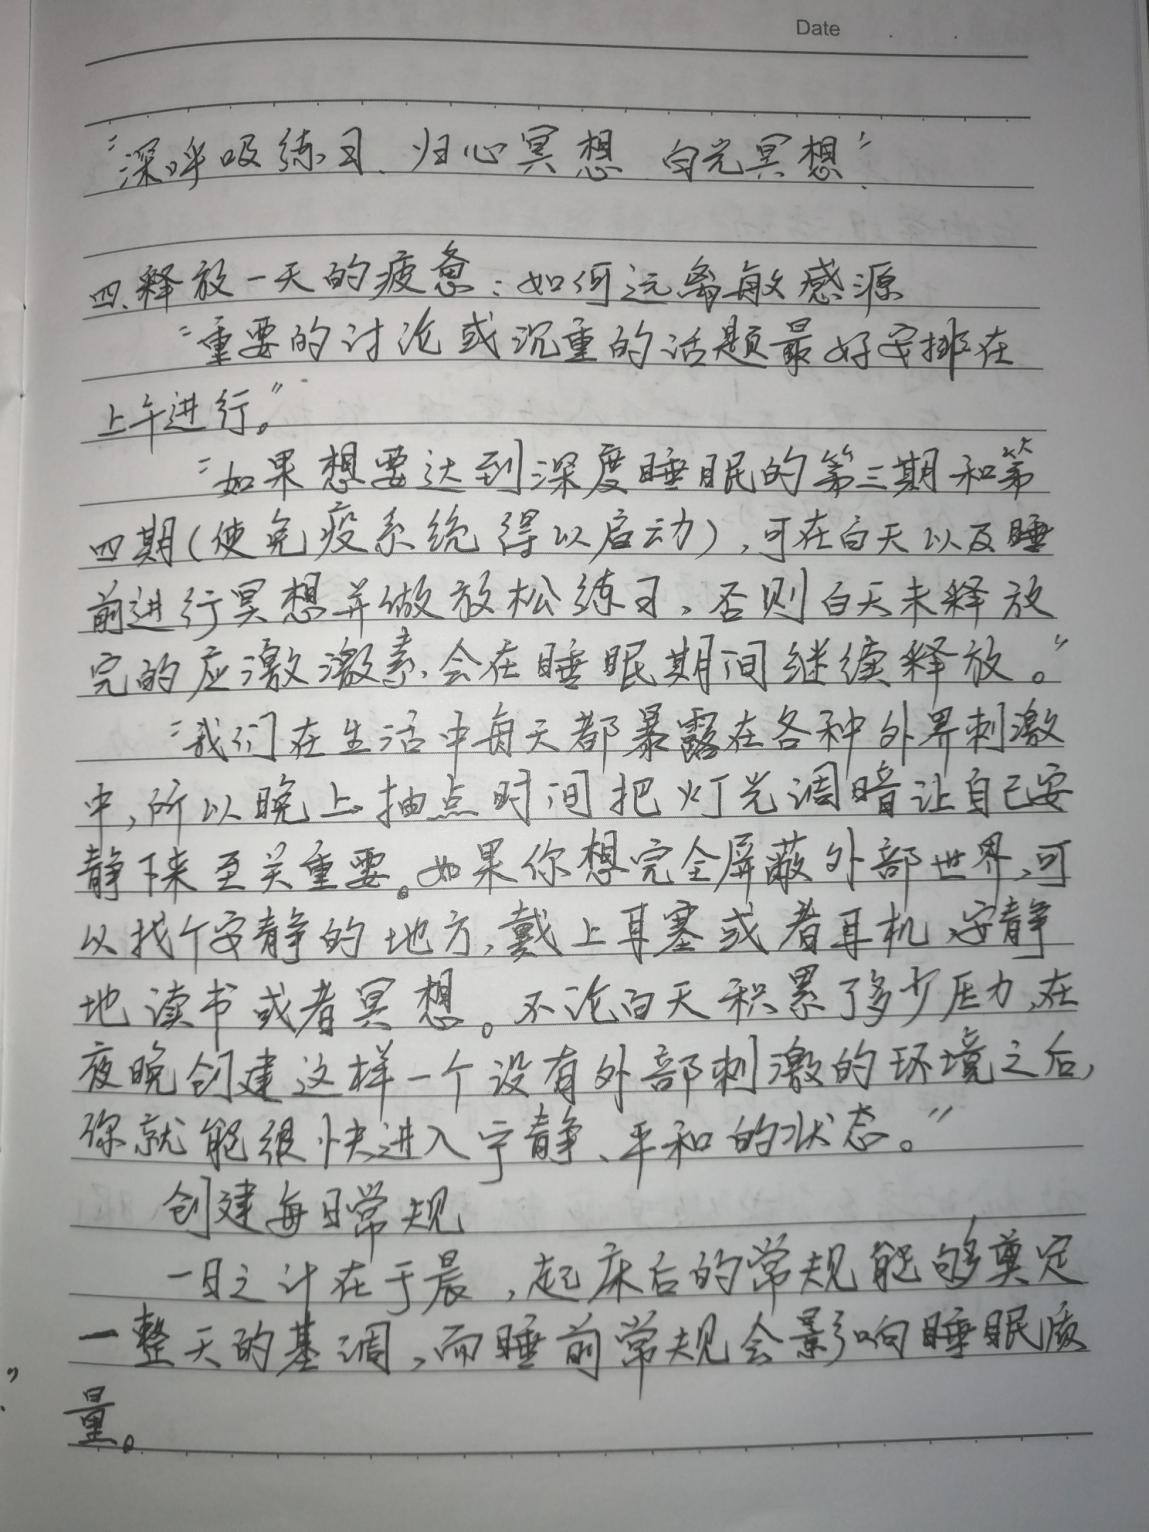 Date
“深呼吸练习、归心冥想、白光冥想”
四、释放一天的疲惫：如何远离敏感源
“重要的讨论或沉重的话题最好安排在
上午进行。”
“如果想要达到深度睡眠的第三期和第
四期(使免疫系统得以启动)，可在白天以及睡
前进行冥想并做放松练习，否则白天未释放
完的应激激素，会在睡眠期间继续释放。”
“我们在生活中每天都暴露在各种外界刺激
中，所以晚上抽点时间把灯光调暗让自己安
静下来至关重要。如果你想完全屏蔽外部世界，可
以找个安静的地方，戴上耳塞或者耳机，安静
地读书或者冥想。不论白天积累了多少压力，在
夜晚创建这样一个没有外部刺激的环境之后，
你就能很快进入宁静、平和的状态。”
创建每日常规
一日之计在于晨，起床后的常规能够奠定
一整天的基调，而睡前常规会影响睡眠质
量。